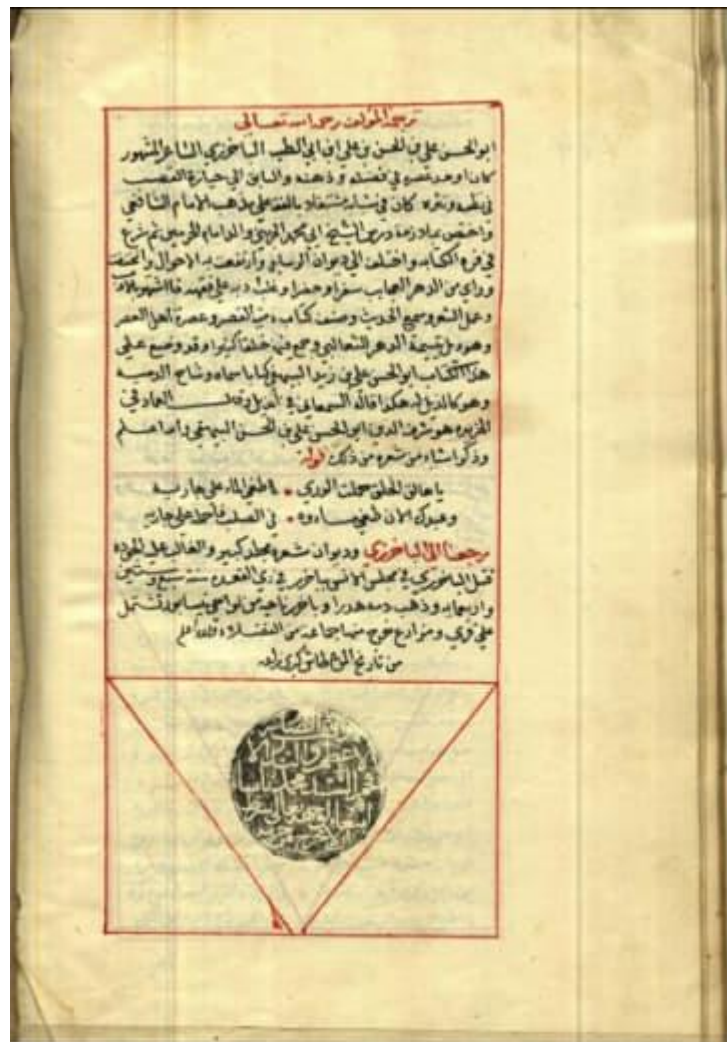 ترجمة المؤلف رحمه الله تعالى
ابو الحسن علي بن الحسن بن علي ابن ابي الطيب الباخرزي الشاعر المشهور
كان اوحد عصره في فضله وذهنه والسابق الى حيازة القصب
في نظمه ونثره كان في شبابه مشتغلا بالفقه على مذهب الامام الشافعي
واختص بملازمة درس الشيخ ابي محمد الجويني والد امام الحرمين ثم شرع
في فن الكتابة واختلف الى ديوان الرسايل وارتفعت به الاحوال وانخفضت
وراي من الدهر العجايب سفرا وحضرا وغلب ادبه على فقهه فاشتهر بالادب
وعمل الشعر وسمع الحديث وصنف كتاب دمية القصر وعصرة اهل العصر
وهو ذيل يتيمة الدهر للثعالبي وجمع فيها خلقا كثيرا وقد وضع على
هذا الكتاب ابو الحسن علي بن زيد البيهقي كتابا سماه وشاح الدمية
وهو كالذيل له هكذا قاله السمعاني في الذيل وقال العماد في
الخريدة هو شرف الدين ابو الحسن علي بن الحسن البيهقي والله اعلم
وذكر اشياء من شعره من ذلك قوله
يا خالق الخلق حملت الورى • لما طغى الماء على جاريه
وعبدك الان طغى ماءه • في الصلب فاحمله على جاريه
رجعنا الى الباخرزي وديوان شعره مجلد كبير والغالب عليه الجودة
قتل الباخرزي في مجلس الانس بباخرز في ذي القعدة سنة سبع وستين
واربعماية وذهب دمه هدرا وباخرز ناحية من نواحي نيسابور تشتمل
على قري ومزارع خرج منها جماعة من الفضلاء والله اعلم
من تاريخ